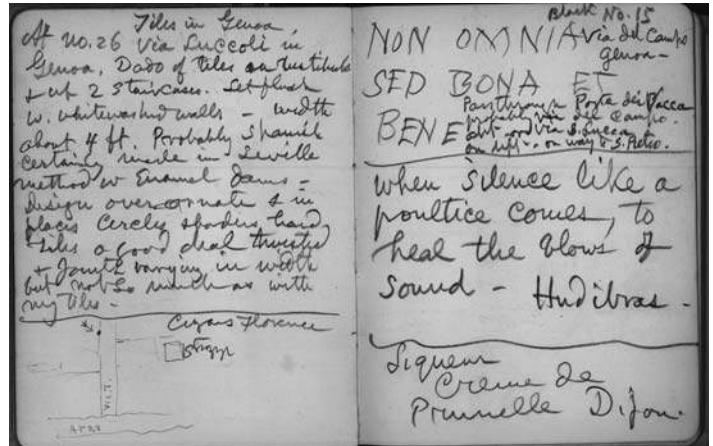 Tiles in Genoa,
At no. 26 Via Luccoli in
Genoa, Dado of tiles on vestibule
& up 2 staircases. Set flush
w. whitewashed walls — width
about 4 ft. Probably Spanish
certainly made in Seville
method w Enamel Dams —
Design over ornate & in
places
Tiles a good deal twisted
& Joints varying in width
but not so much as with
my tiles —
Florence
Black No. 15
NON OMNIA
Via del Campo
Genoa —
SED BONA ET
Pass through Porta dei Vacca
probably via del Campo.
BENE
on way to S. Pietro.
when silence like a
poultice comes, to
heal the blows of
sound — Hudibras —
Liqueur
Creme de
Prunelle Dijon.